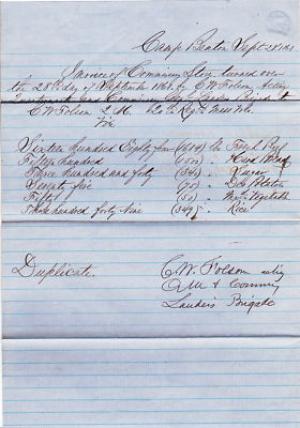 Camp Benton Sept 28 1861
Invoice of Commissary Stores turned over
the 28th day of September 1861 by C W Folsom Acting
Quartermaster and Commissary
C W Folsom Q. M. 20th Regt Mass Vols.
Viz
Sixteen hundred Eighty four (1684) lbs Fresh Beef
Fifteen hundred (1500) " Hard Bread
Three hundred and forty (340) " Sugar
Seventy five
Fifty (50) " Vegetable
Three hundred forty Nine (349) " Rice
Duplicate.
C. W. Folsom actg
Q M & Commissy
Landers Brigade